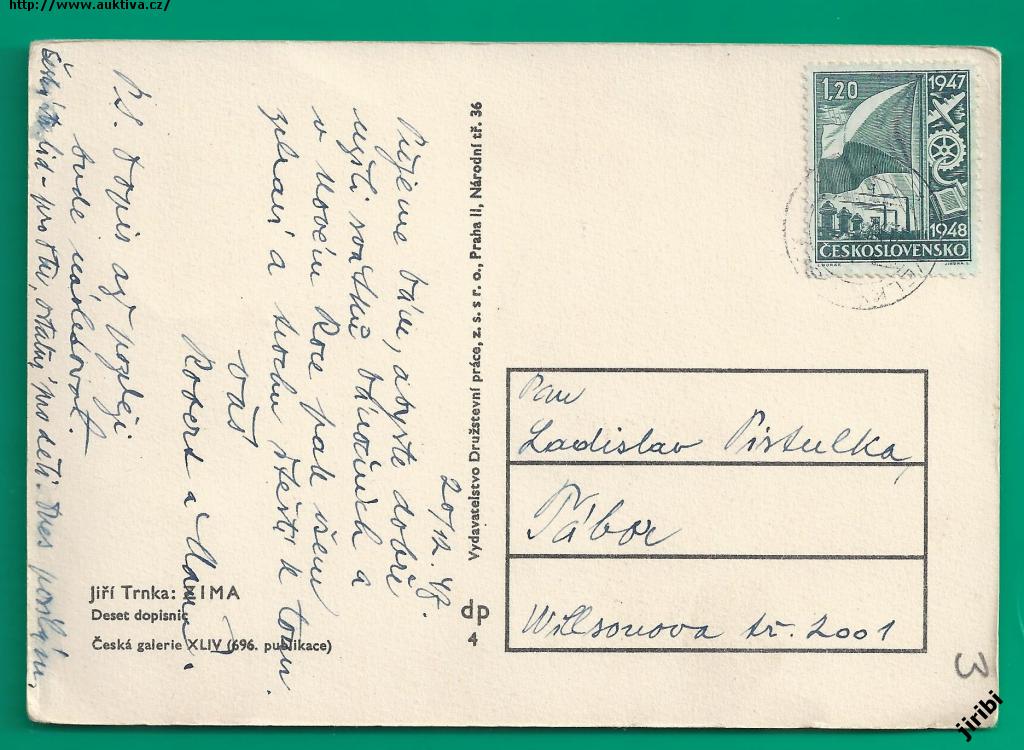 http://www.auktiva.cz/
1,20
1947
1948
ČESKOSLOVENSKO
Pan
Ladislav Pistulka,
Tábor
Willsonova tř. 2001
Vydavatelstvo Družstevní práce, z. s. s r. o., Praha II, Národní tř. 36
dp
4
20/12. 47.
Přejeme Vám, abyste dobře
užili svátků Vánočních a
v Novém Roce pak všem
zdraví a trochu štěstí k tomu.
Váš
P.S. Dopis až později
bude následovat.
lid - pro Tvu, ostatní pro děti. Dnes posílám,
Jiří Trnka: ZIMA
Deset dopisnic
Česká galerie XLIV (696. publikace)
3
jiribi